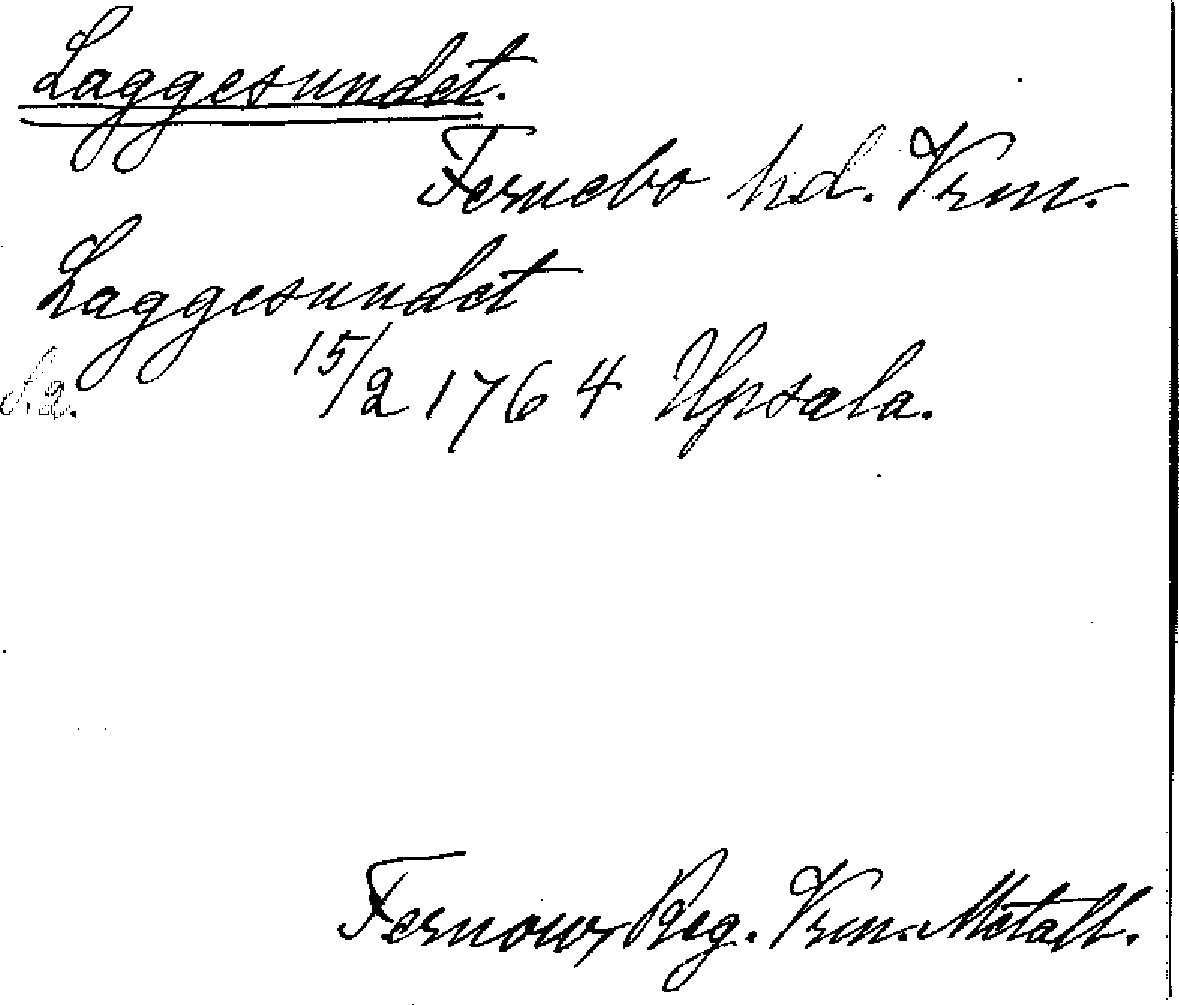 Laggesundet.
Fernebo hd. Vrm.
Laggesundet
15/2 1764 Upsala.
Fernows Reg. Vrm. Metall.